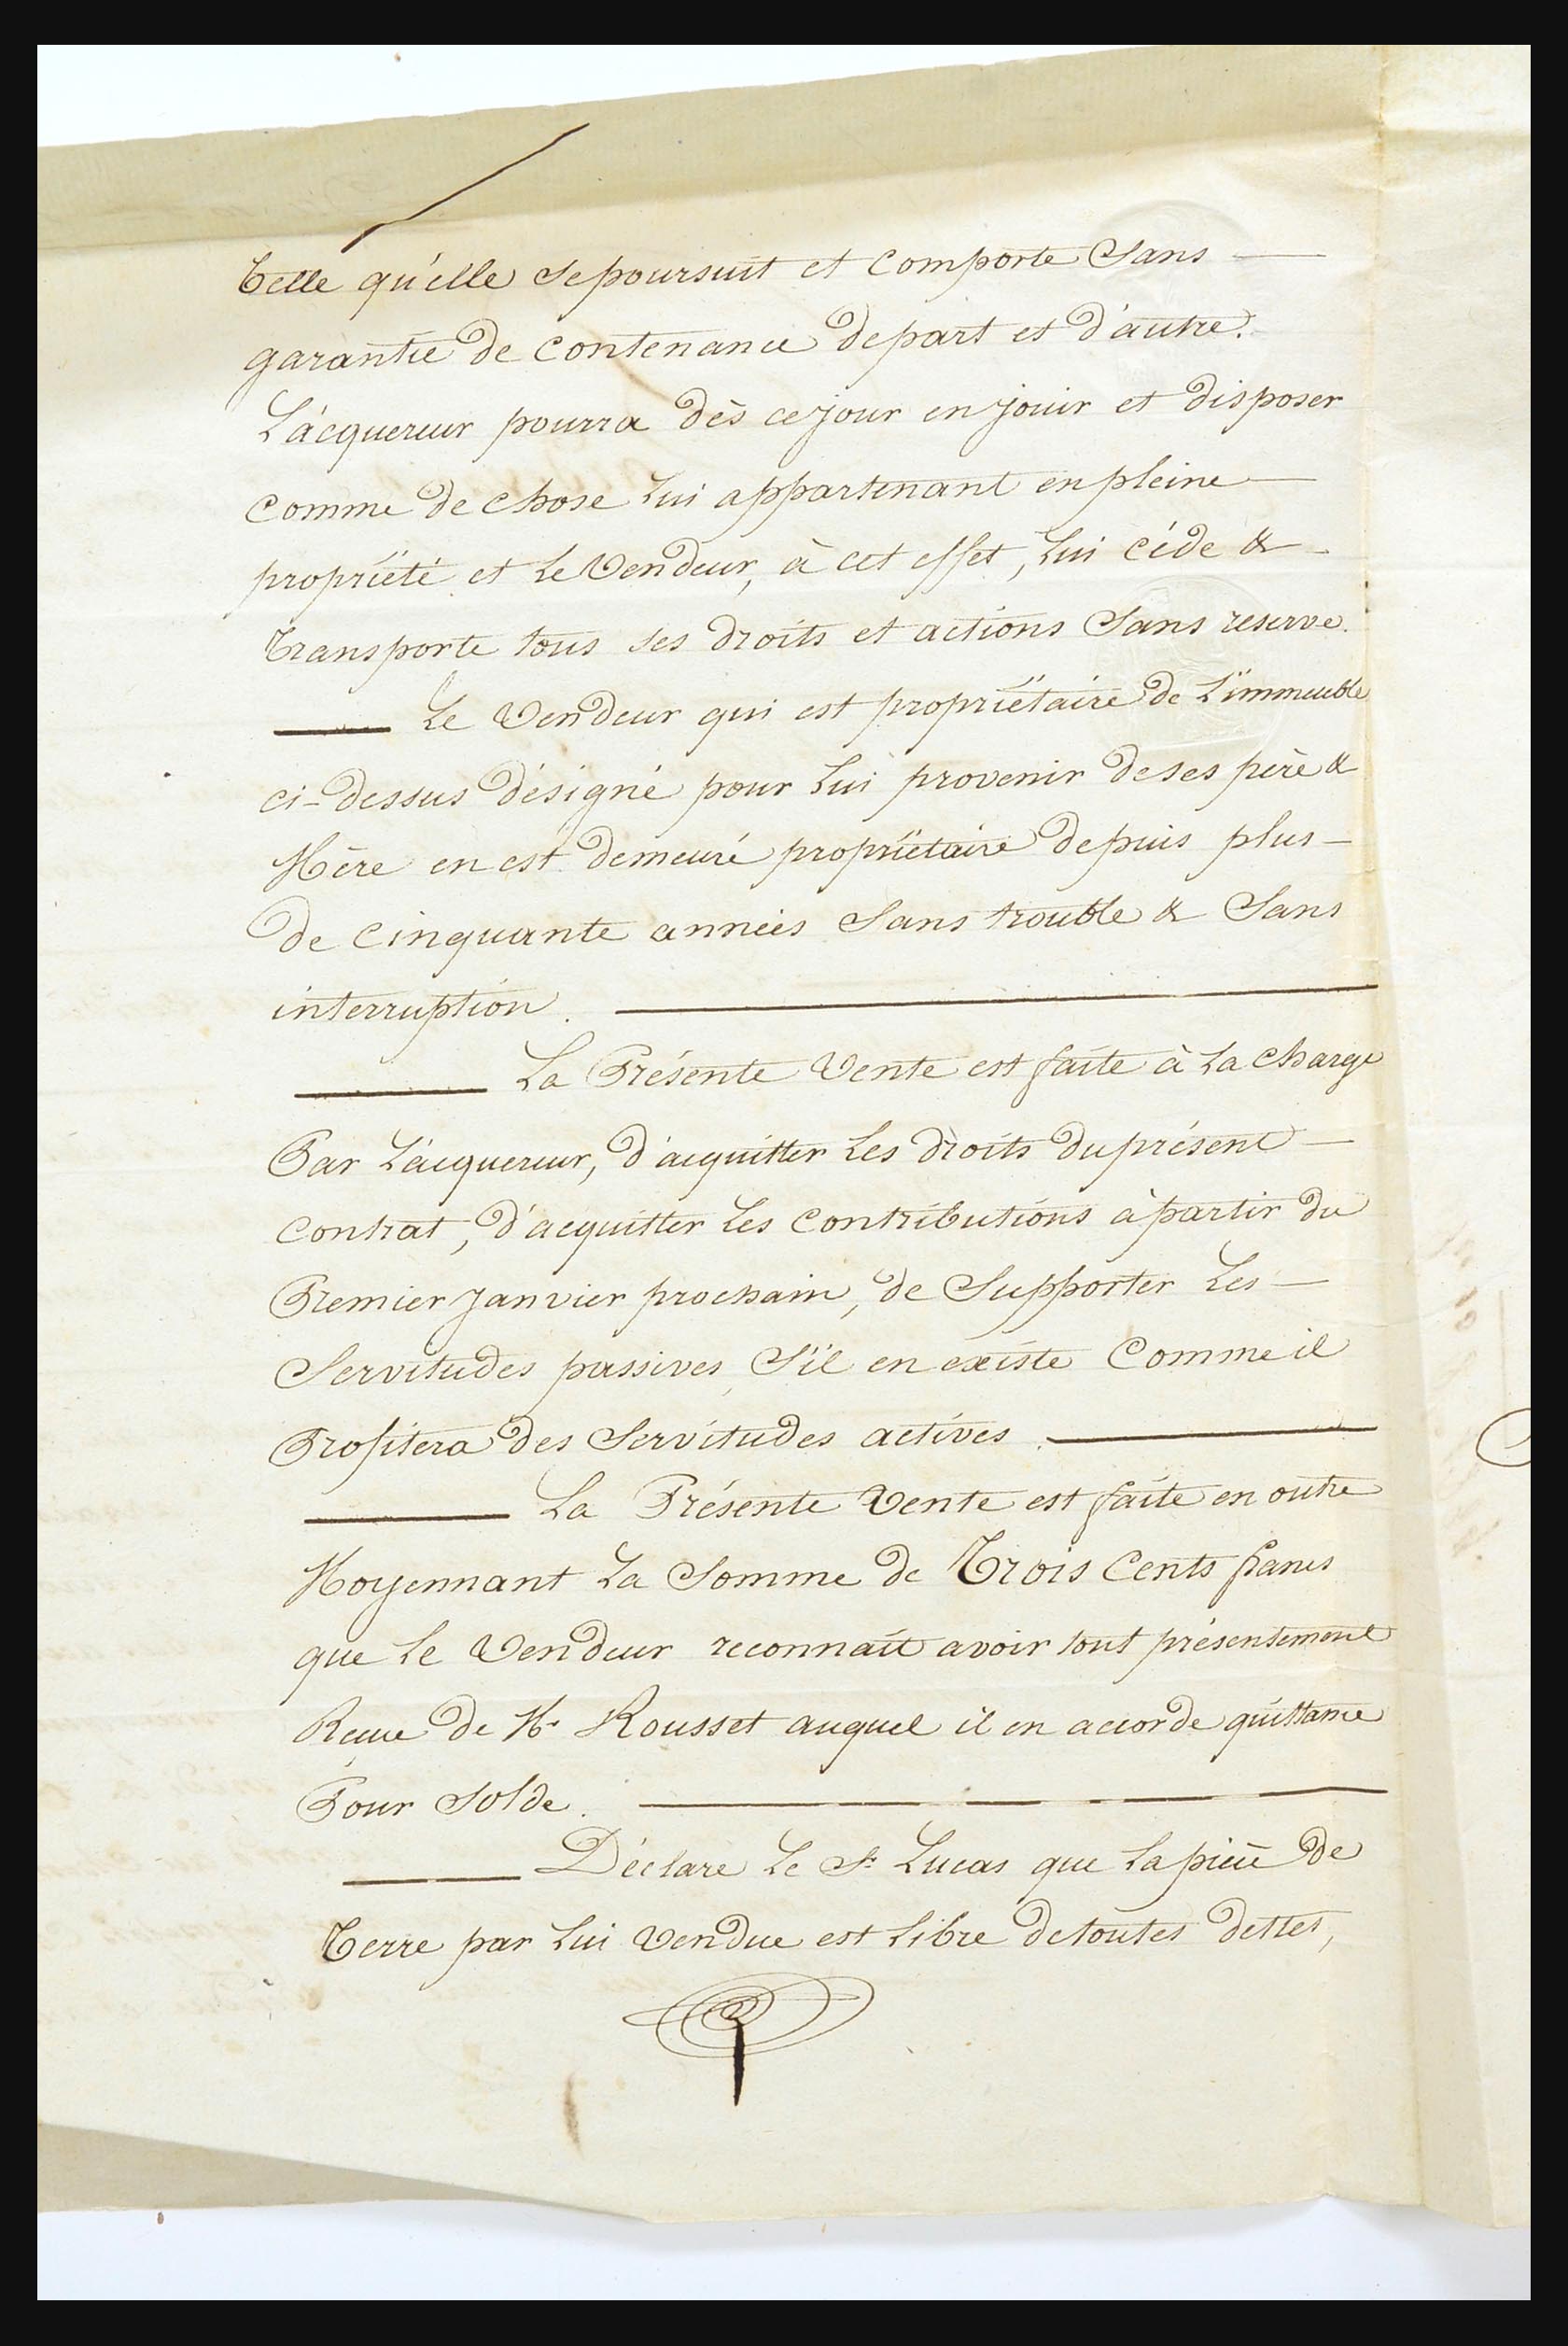 Telle qu'elle se poursuit et Comporte Sans —
garantie de Contenance de part et d'autre.
L'acquereur pourra dès ce jour en jouir et disposer
Comme de chose Lui appartenant en pleine —
propriété et Le Vendeur, à cet effet, Lui cède & -
Transporte tous ses droits et actions Sans reserve.
— Le Vendeur qui est propriétaire de L'immeuble
ci-dessus désigné pour Lui provenir de ses père &
Mère en est demeuré propriétaire depuis plus -
De Cinquante années Sans trouble & Sans
interruption. —
— La Présente Vente est faite à La charge
Par L'acquereur, d'acquitter Les droits du présent —
contrat, d'acquitter Les Contributions à partir du
Premier Janvier prochain, de Supporter Les —
Servitudes passives, S'il en existe Comme il
Profitera des Servitudes actives. —
— La Présente Vente est faite en outre
Moyennant La Somme de Trois Cents francs
que Le Vendeur reconnait avoir tout présentement
Reçue de Mr Rousset auquel il en accorde quittance
Pour Solde. —
— Déclare Le Sr Lucas que La pièce de
Terre par Lui Vendue est Libre de toutes dettes,